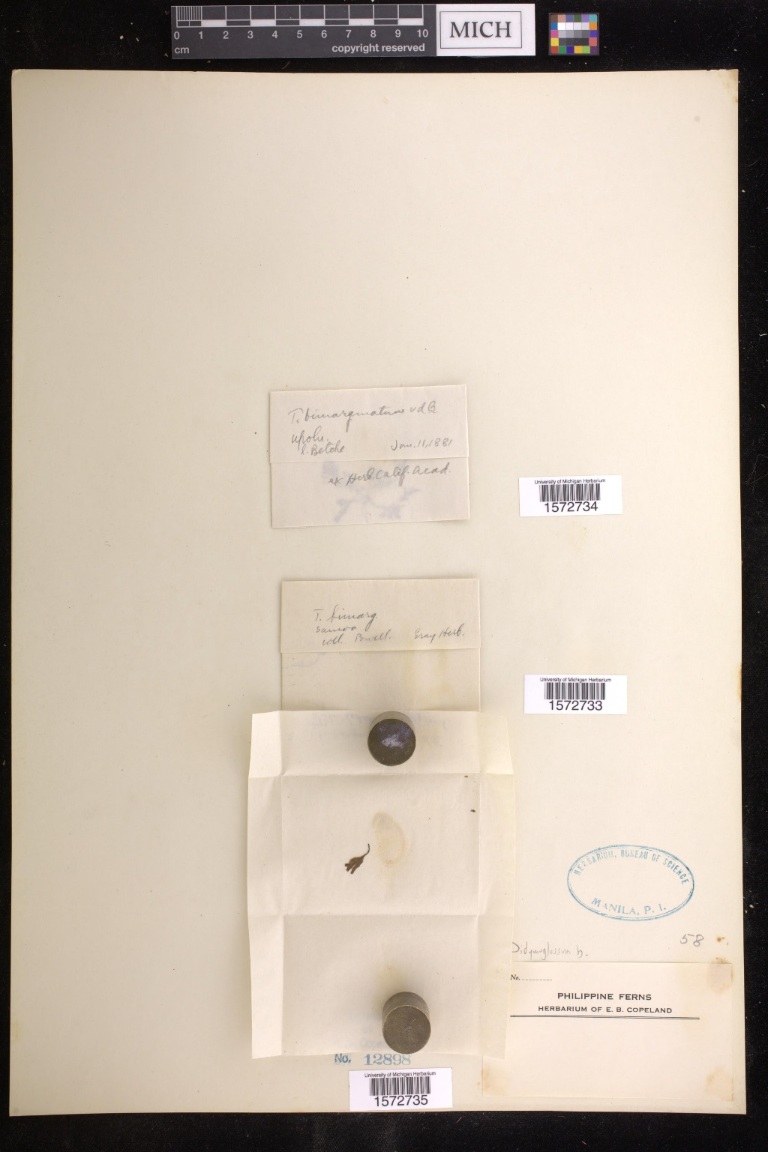 0 1 2 3 4 5 6 7 8 9 10
cm
copyright reserved
MICH
T. bimarginatum v d B.
Upolu.
Betche Jan. 11, 1881
ex Herb Calif. Acad.
University of Michigan Herbarium
1572734
T. bimarg
Samoa
coll. Powell. Gray Herb.
University of Michigan Herbarium
1572733
HERBARIUM, BUREAU OF SCIENCE
MANILA, P. I.
58
Didymoglossum b.
No.
PHILIPPINE FERNS
HERBARIUM OF E. B. COPELAND
No. 12898
University of Michigan Herbarium
1572735